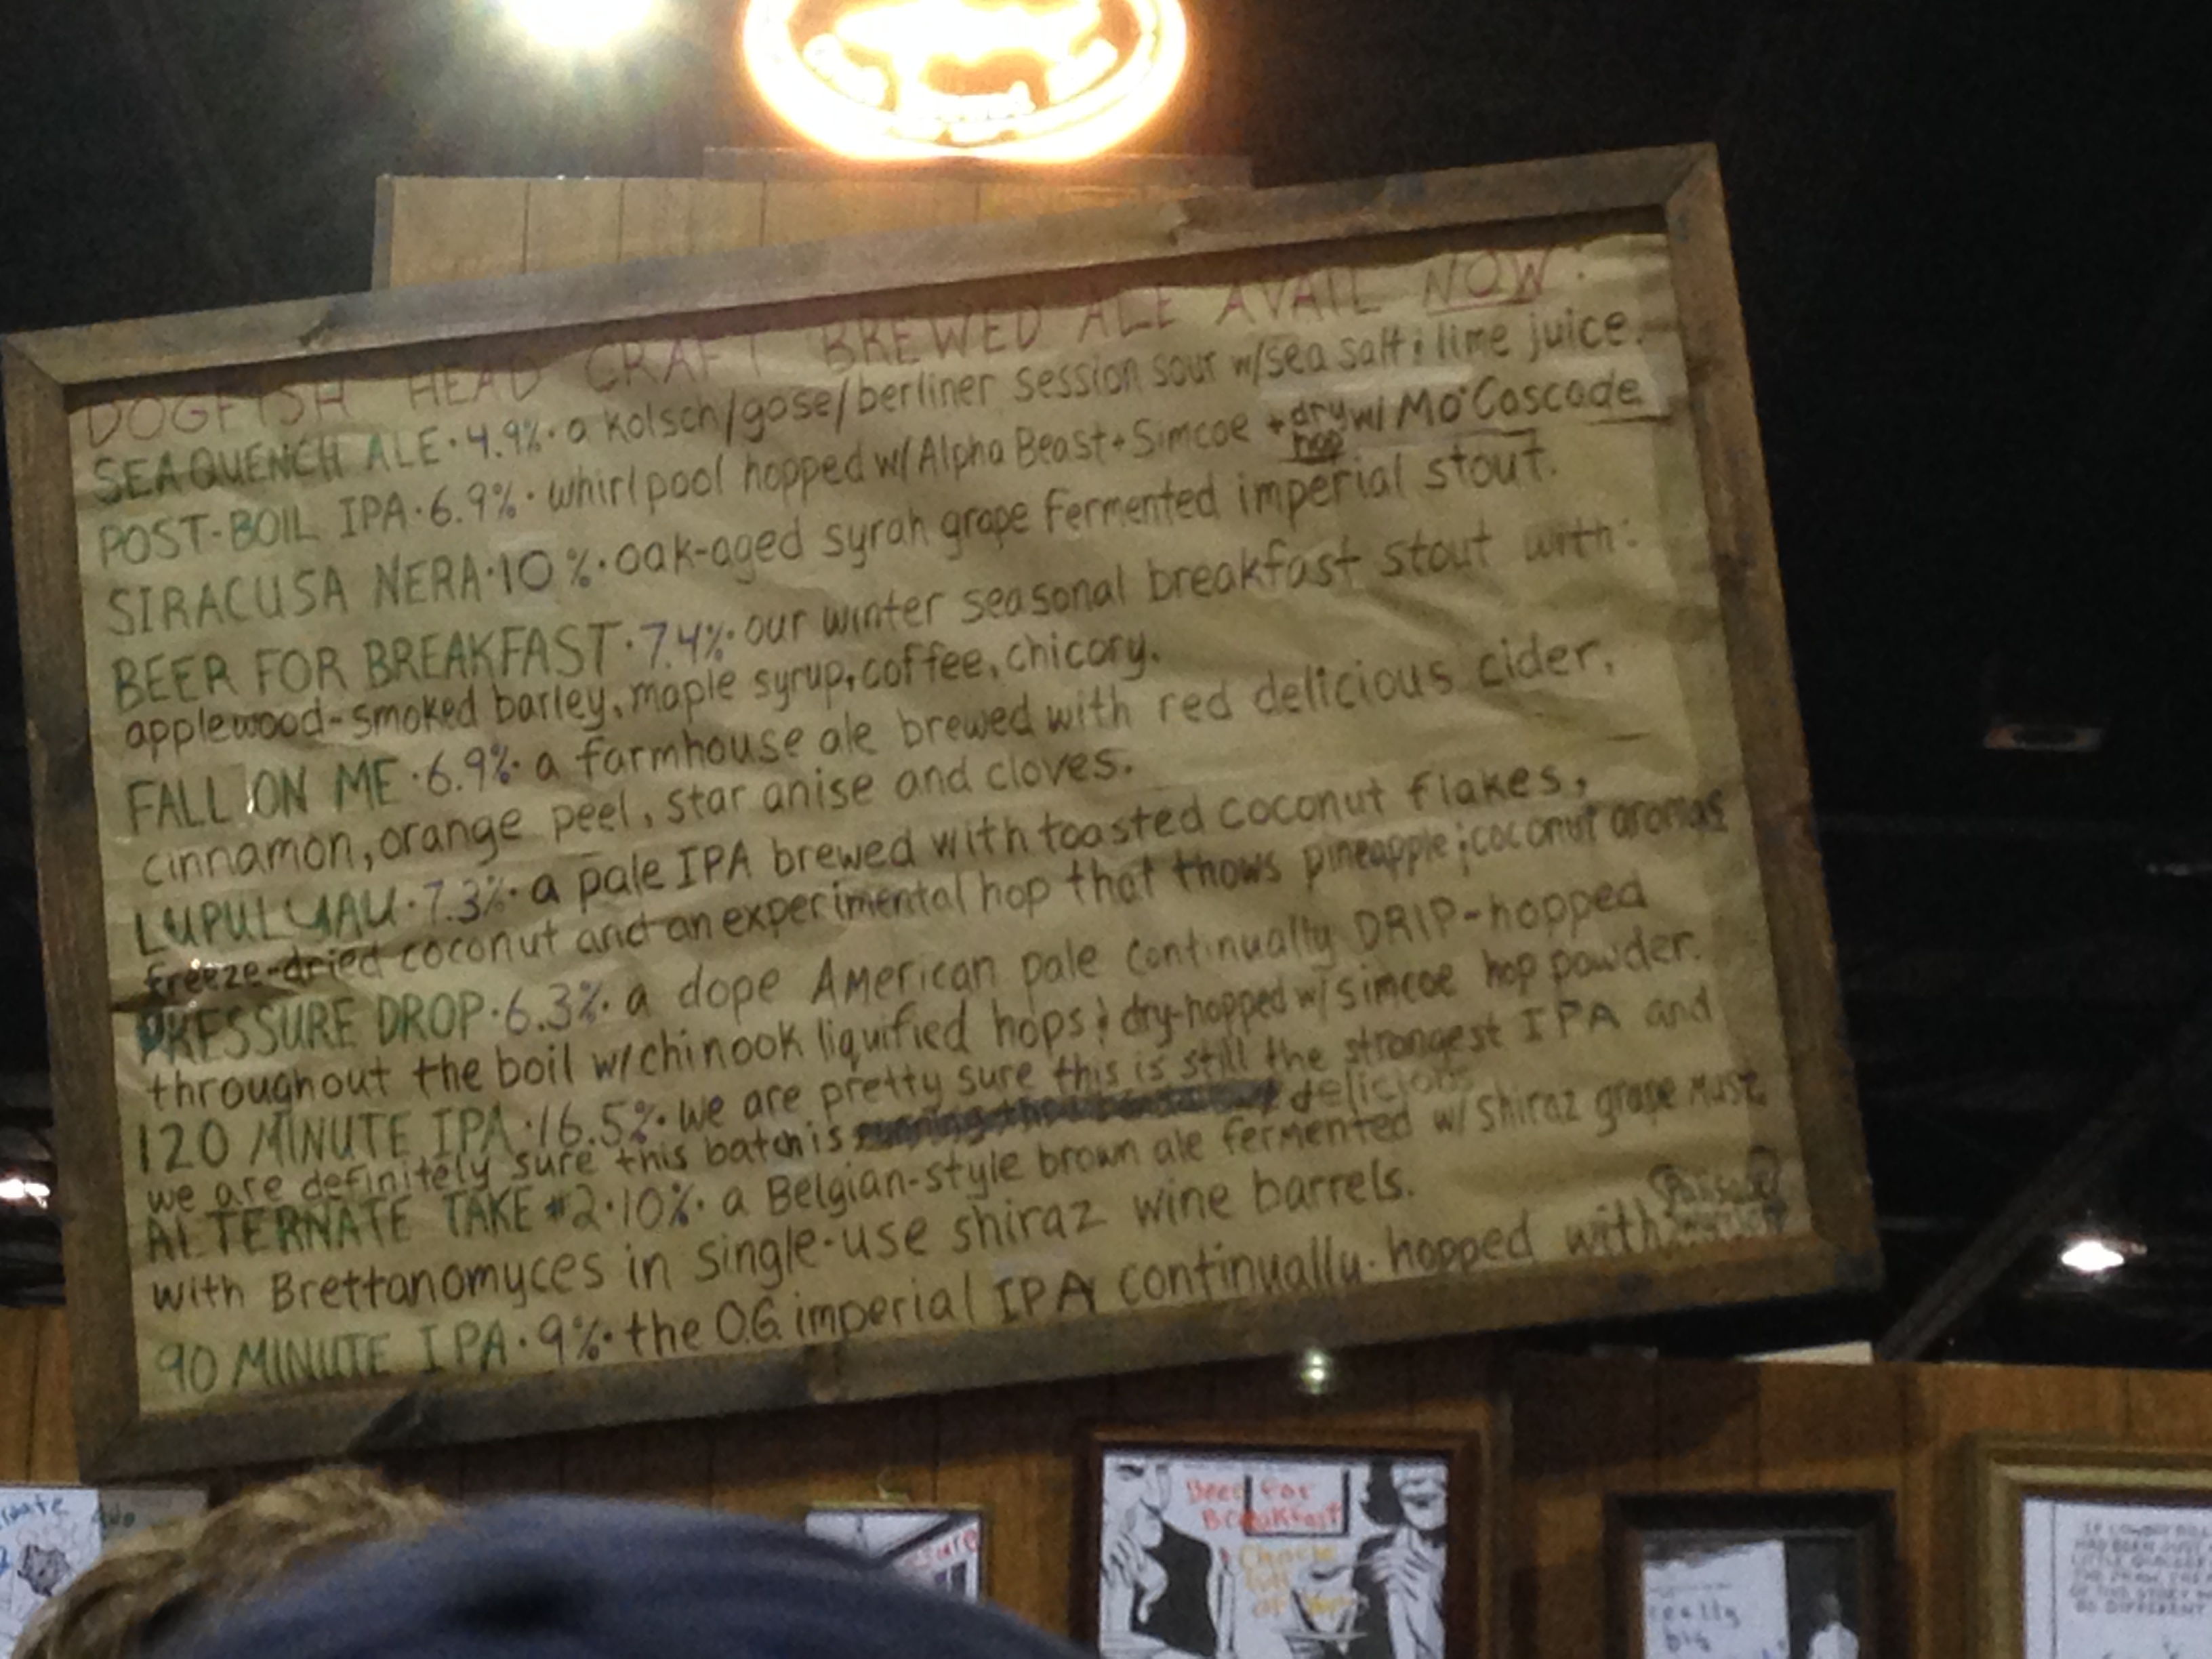 DOGFISH HEAD CRAFT BREWED ALE AVAIL NOW.
SEAQUENCH ALE · 4.9% · a kolsch/gose/berliner session sour w/sea salt & lime juice.
POST-BOIL IPA · 6.9% · whirlpool hopped w/ Alpha Beast + Simcoe + dry hop w/ Mo' Cascade
SIRACUSA NERA · 10% · oak-aged syrah grape fermented imperial stout.
BEER FOR BREAKFAST · 7.4% · our winter seasonal breakfast stout with:
applewood-smoked barley, maple syrup, coffee, chicory.
FALL ON ME · 6.9% · a farmhouse ale brewed with red delicious cider,
cinnamon, orange peel, star anise and cloves.
LUPULYAU · 7.3% · a pale IPA brewed with toasted coconut flakes,
freeze-dried coconut and an experimental hop that thows pineapple & coconut aromas
PRESSURE DROP · 6.3% · a dope American pale continually DRIP-hopped
throughout the boil w/chinook liquified hops & dry-hopped w/ simcoe hop powder.
120 MINUTE IPA · 16.5% · we are pretty sure this is still the strongest IPA and
we are definitely sure this batch is delicious
ALTERNATE TAKE #2 · 10% · a Belgian-style brown ale fermented w/ Shiraz grape must
with Brettanomyces in single-use shiraz wine barrels.
90 MINUTE IPA · 9% · the O.G. imperial IPA continually-hopped with
Beer for
Breakfast
really
big